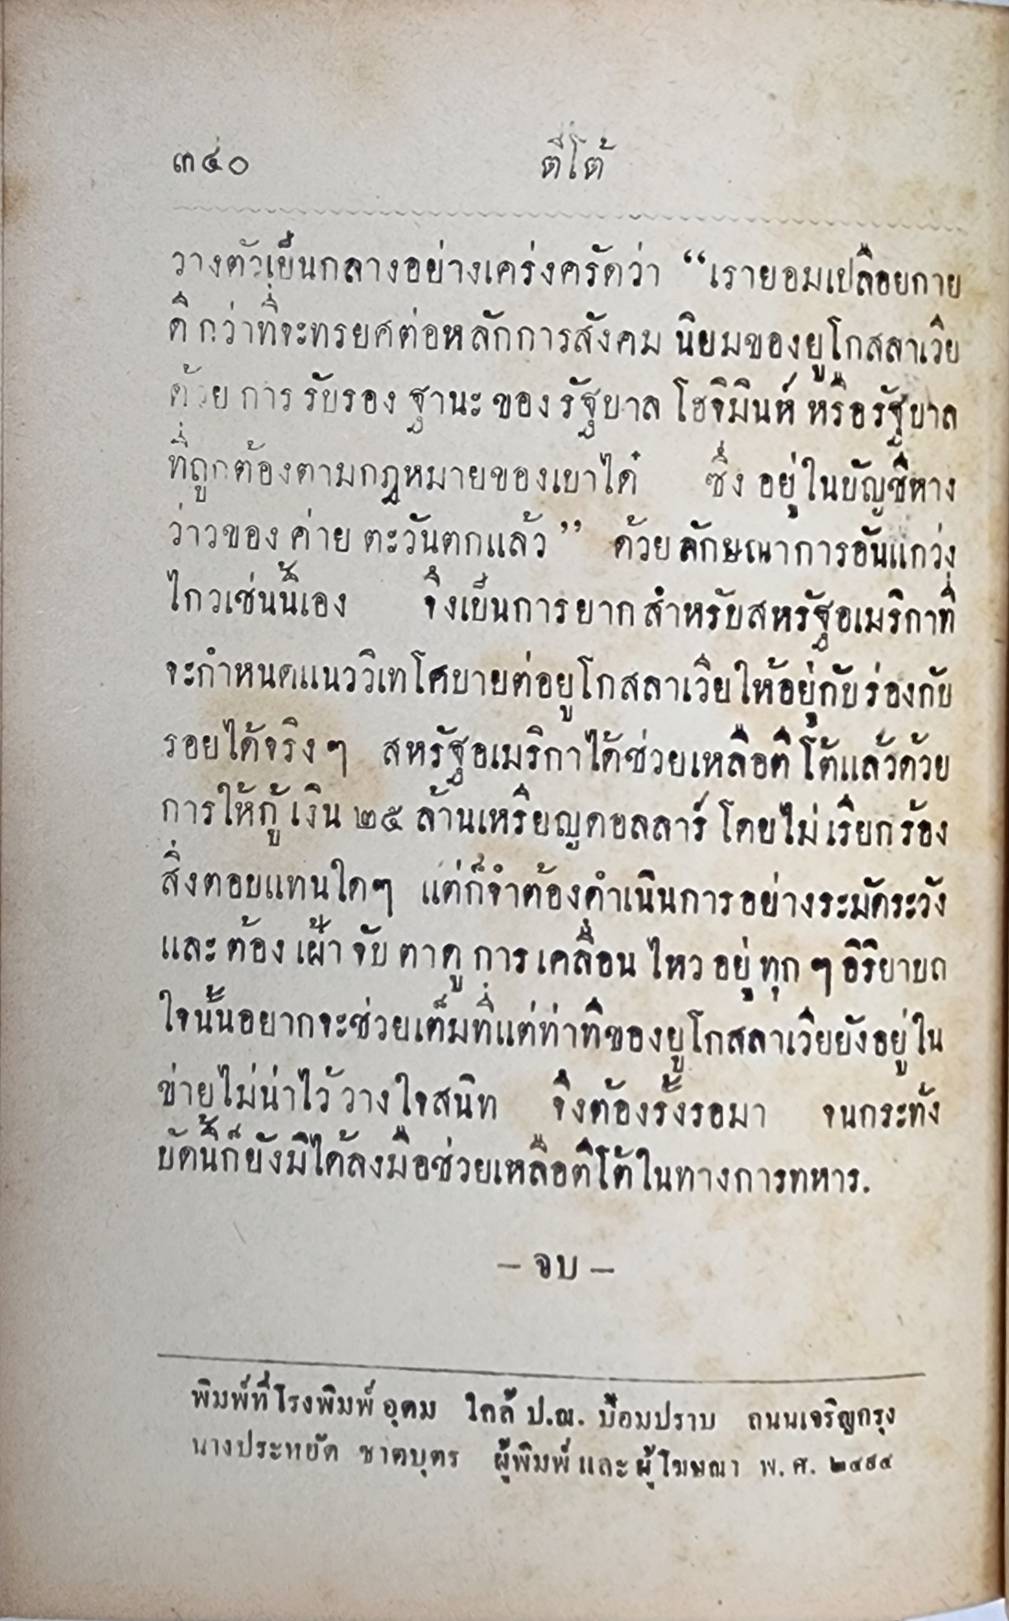 ๓๔๐ ตีโต้
วางตัวเป็นกลางอย่างเคร่งครัดว่า “เรายอมเปลือยกาย
ดีกว่าที่จะทรยศต่อหลักการสังคมนิยมของยูโกสลาเวีย
ด้วยการรับรองฐานะของรัฐบาลโฮจิมินห์หรือรัฐบาล
ที่ถูกต้องตามกฎหมายของเบาได๋ ซึ่งอยู่ในบัญชีหาง
ว่าวของค่ายตะวันตกแล้ว” ด้วยลักษณาการอันแกว่ง
ไกวเช่นนี้เอง จึงเป็นการยากสำหรับสหรัฐอเมริกาที่
จะกำหนดแนววิเทโศบายต่อยูโกสลาเวียให้อยู่กับร่องกับ
รอยได้จริงๆ สหรัฐอเมริกาได้ช่วยเหลือตีโต้แล้วด้วย
การให้กู้เงิน ๒๕ ล้านเหรียญดอลลาร์ โดยไม่เรียกร้อง
สิ่งตอบแทนใดๆ แต่ก็จำต้องดำเนินการอย่างระมัดระวัง
และต้องเฝ้าจับตาดูการเคลื่อนไหวอยู่ทุกๆอิริยาบถ
ใจนั้นอยากจะช่วยเต็มที่แต่ท่าทีของยูโกสลาเวียยังอยู่ใน
ข่ายไม่น่าไว้วางใจสนิท จึงต้องรั้งรอมา จนกระทั่ง
บัดนี้ก็ยังมิได้ลงมือช่วยเหลือตีโต้ในทางการทหาร.
– จบ –
พิมพ์ที่โรงพิมพ์อุดม ใกล้ ป.ณ. ป้อมปราบ ถนนเจริญกรุง
นางประหยัด ชาตบุตร ผู้พิมพ์และผู้โฆษณา พ.ศ. ๒๔๙๔